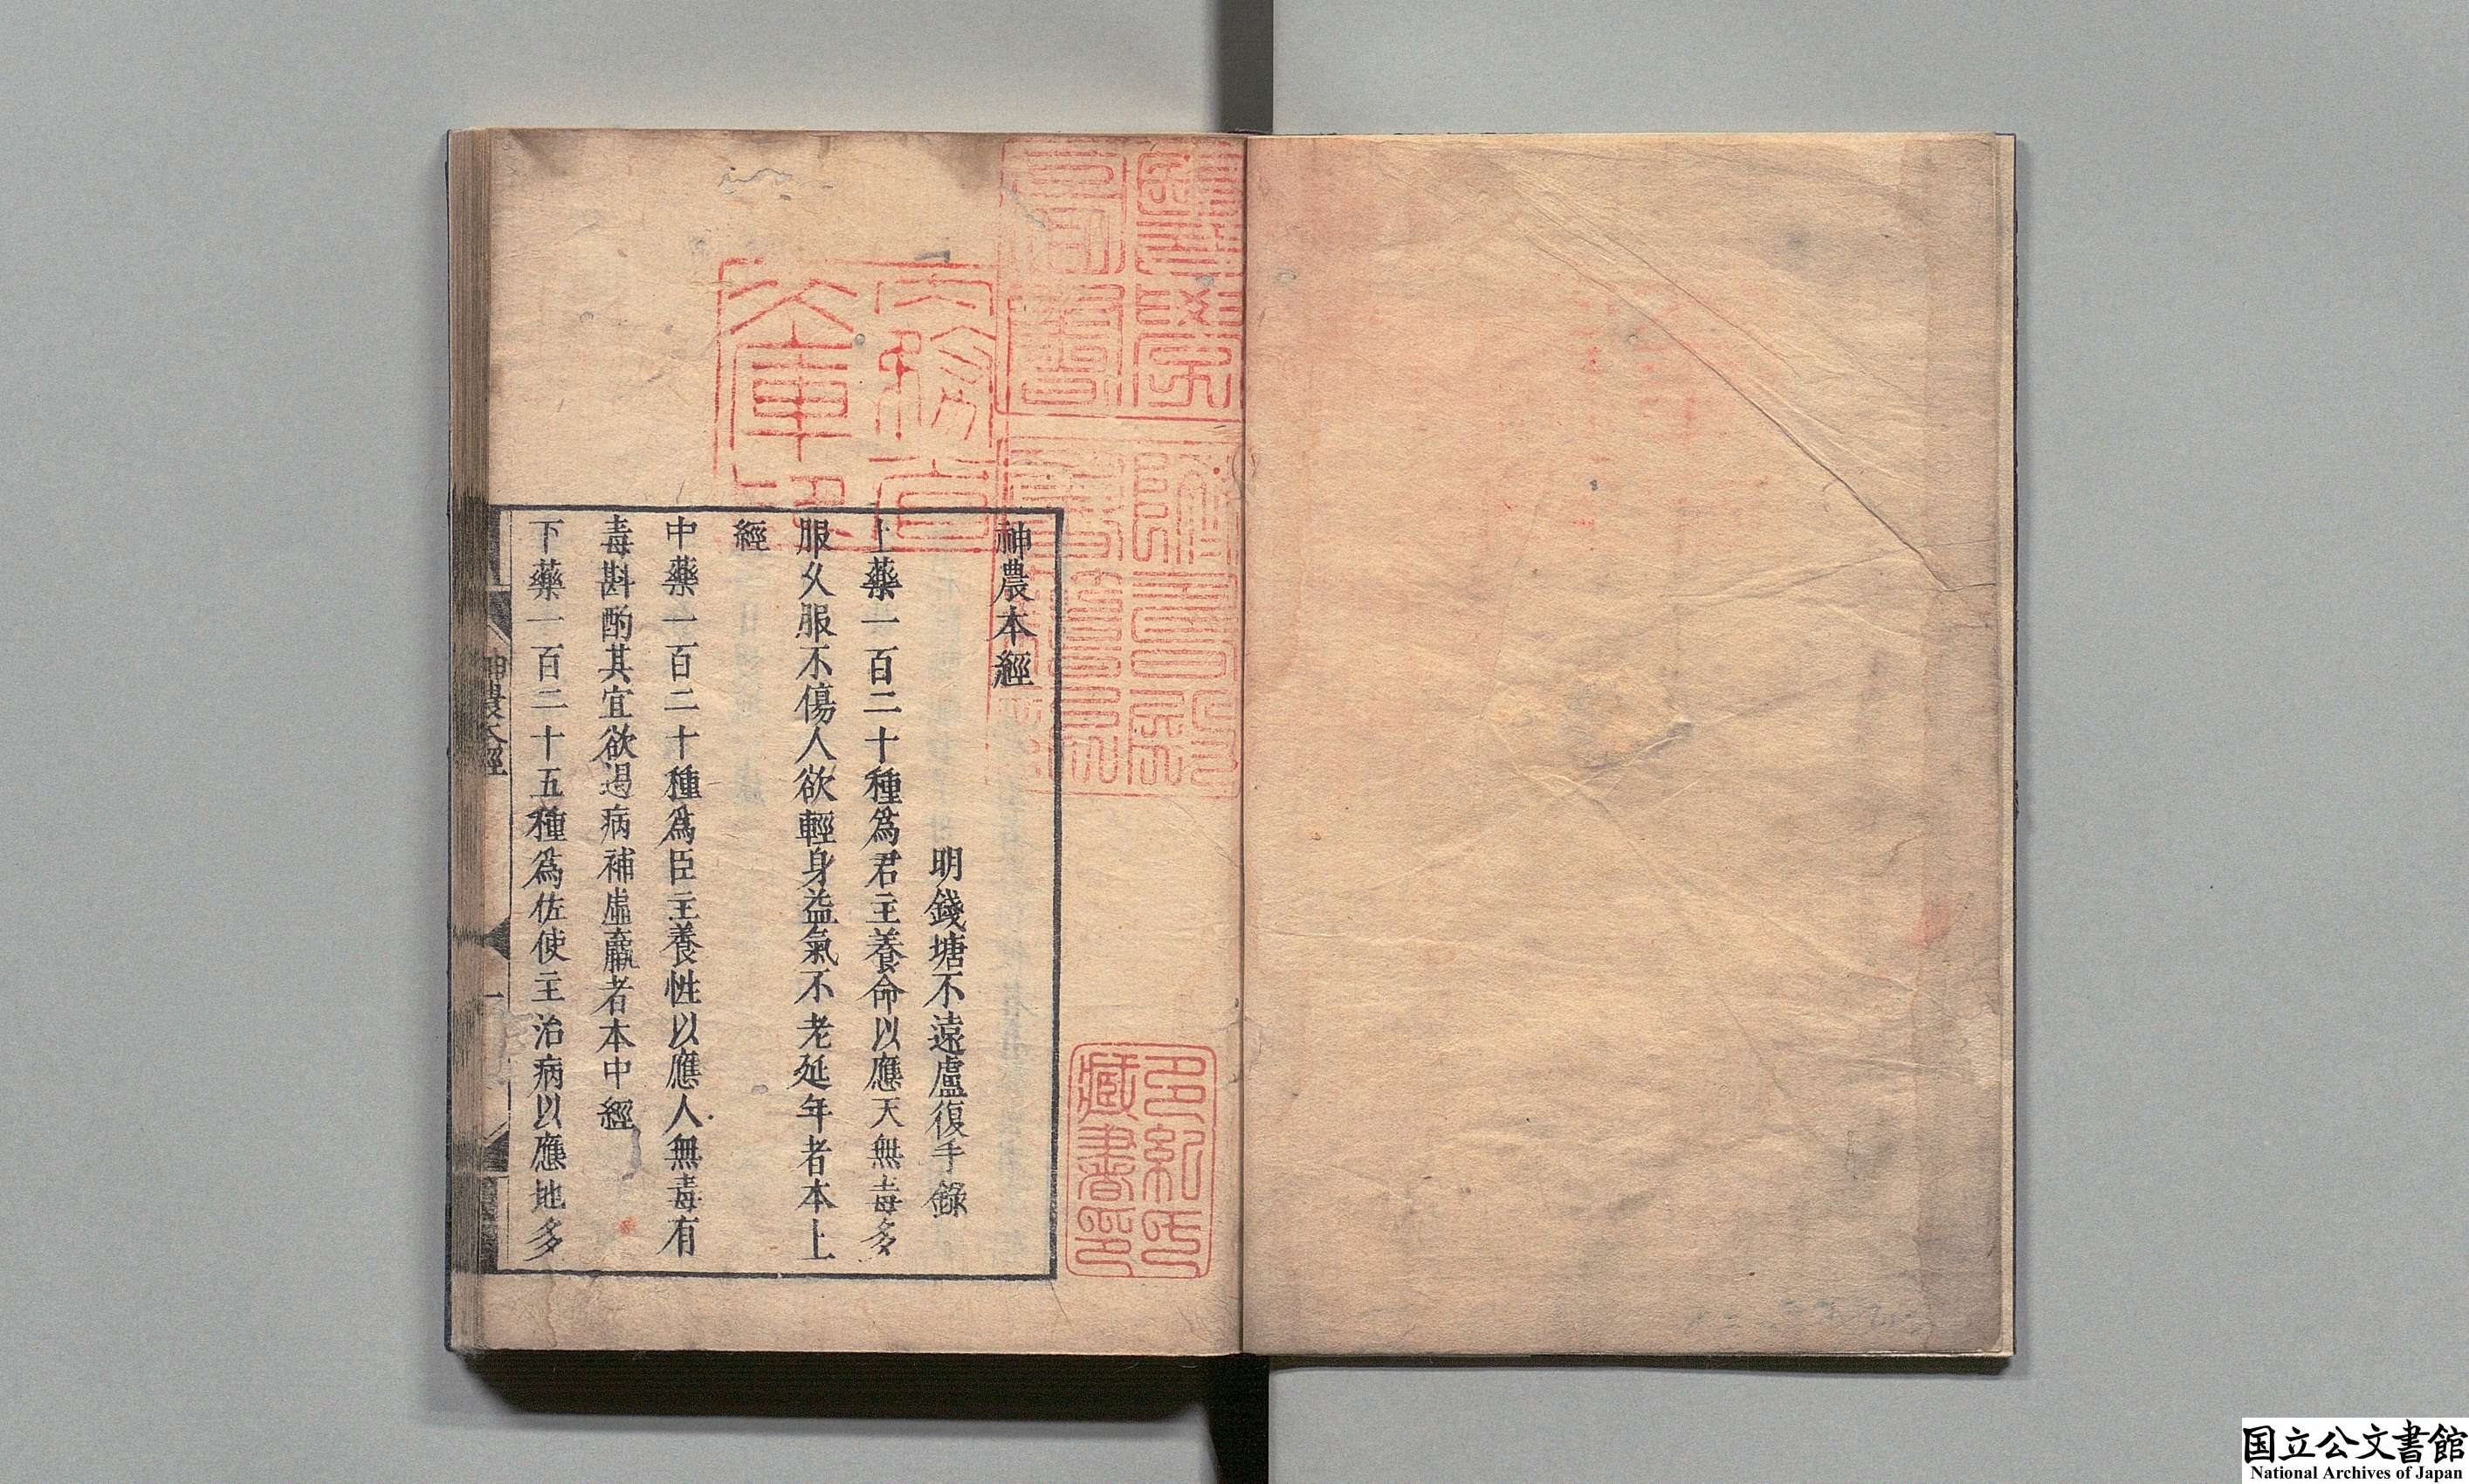 神農本經
明錢塘不遠盧復手錄
上藥一百二十種爲君主養命以應天無毒多
服久服不傷人欲輕身益氣不老延年者本上
經
中藥一百二十種爲臣主養性以應人無毒有
毒斟酌其宜欲遏病補虛羸者本中經
下藥一百二十五種爲佐使主治病以應地多
神農本經
一
多紀氏
藏書印
国立公文書館
National Archives of Japan